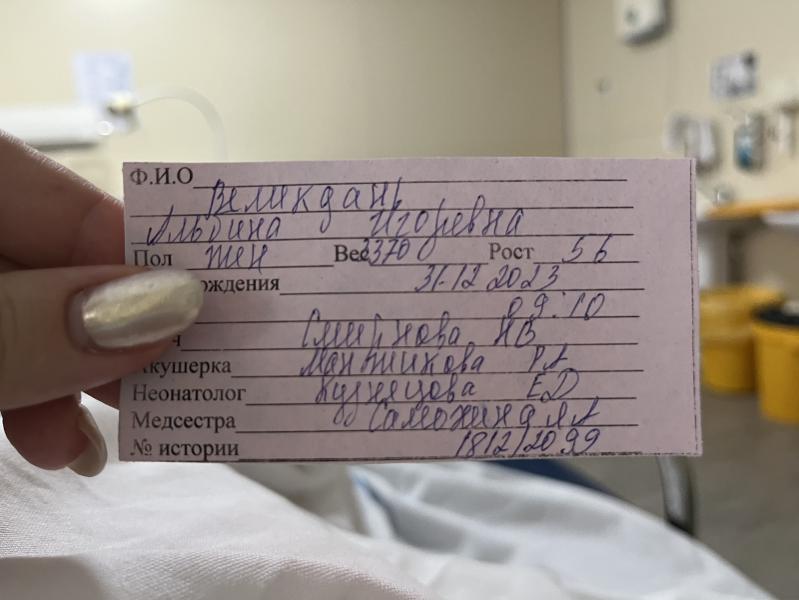 Ф.И.О
Великдань
Альбина Игоревна
Пол жен Вес 3370 Рост 56
рождения 31.12 2023
09:10
Смирнова НВ
Акушерка Манжикова РА
Неонатолог Кузнецова ЕД
Медсестра Самохина ЯА
№ истории 1812/2099